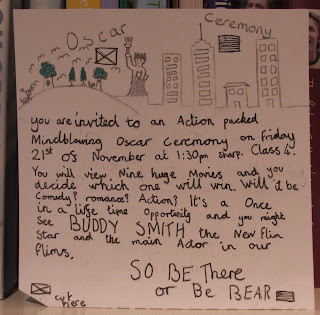 Oscar Ceremony
you are invited to an Action packed
Mindblowing Oscar Ceremony on friday
21st of November at 1:30pm sharp. Class 4.
You will view. Nine huge Movies and you
decide which one will win. Will it be
Comedy? romance? Action? It's a Once
in a life time Opportunity and you might
See BUDDY SMITH the New flim
Star and the main Actor in our
flims.
SO BE There
or Be BEAR
cut
here